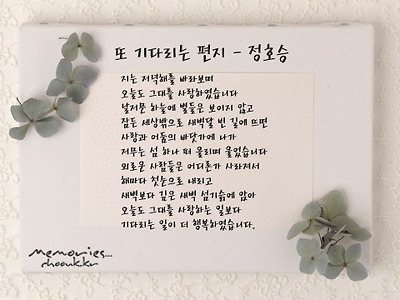 또 기다리는 편지 - 정호승
지는 저녁해를 바라보며
오늘도 그대를 사랑하였습니다
날저문 하늘에 별들은 보이지 않고
잠든 세상밖으로 새벽달 빈 길에 뜨면
사랑과 어둠의 바닷가에 나가
저무는 섬 하나 떠 올리며 울었습니다
외로운 사람들은 어디론가 사라져서
해마다 첫눈으로 내리고
새벽보다 깊은 새벽 섬기슭에 앉아
오늘도 그대를 사랑하는 일보다
기다리는 일이 더 행복하였습니다.
memories...
chookkr